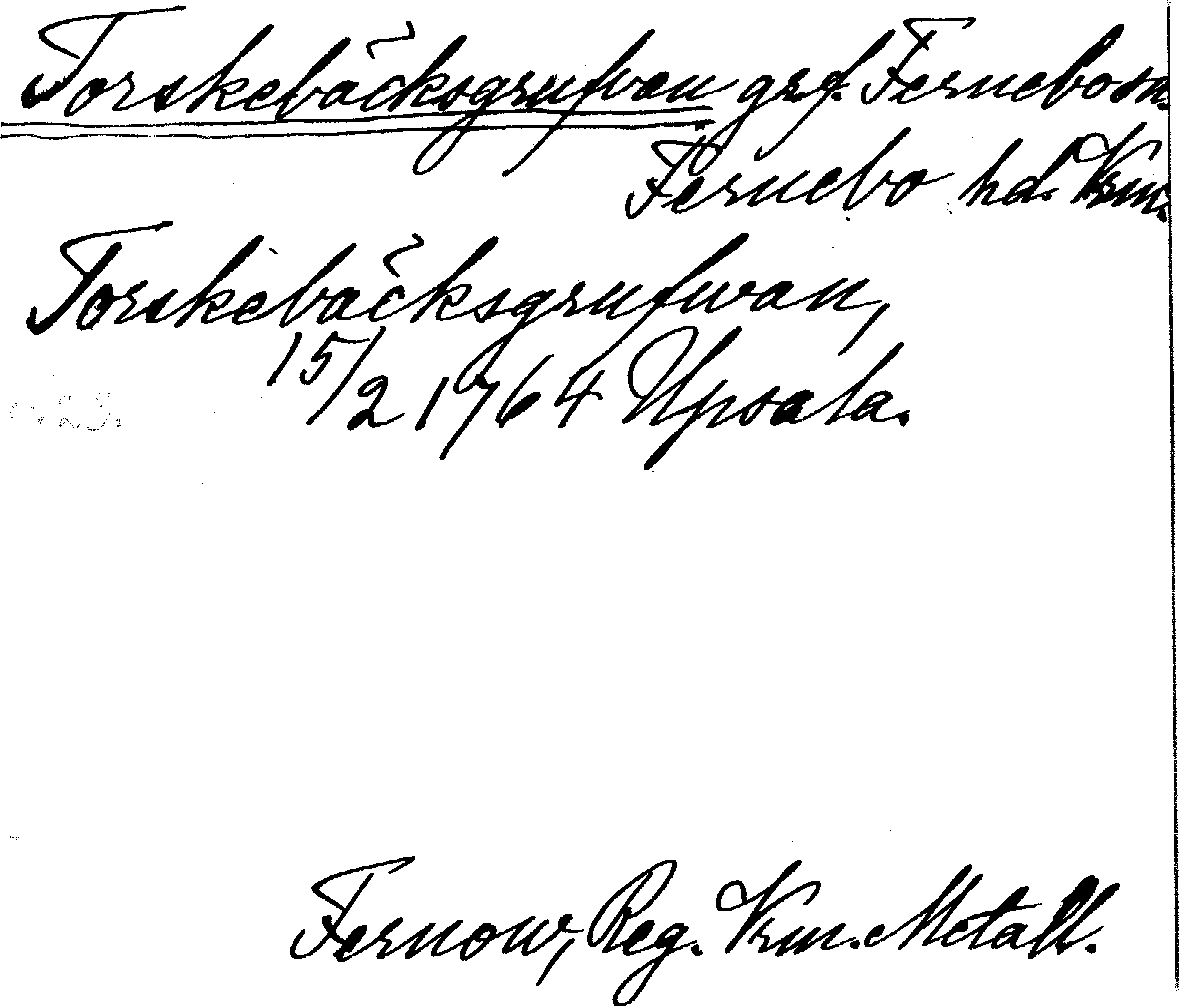 Torskebäcksgrufwan grf. Fernebo sn.
Fernebo hd. Vrm.
Torskebäcksgrufwan,
15/2 1764 Upsala.
Fernow, Reg. Vrm. Metall.